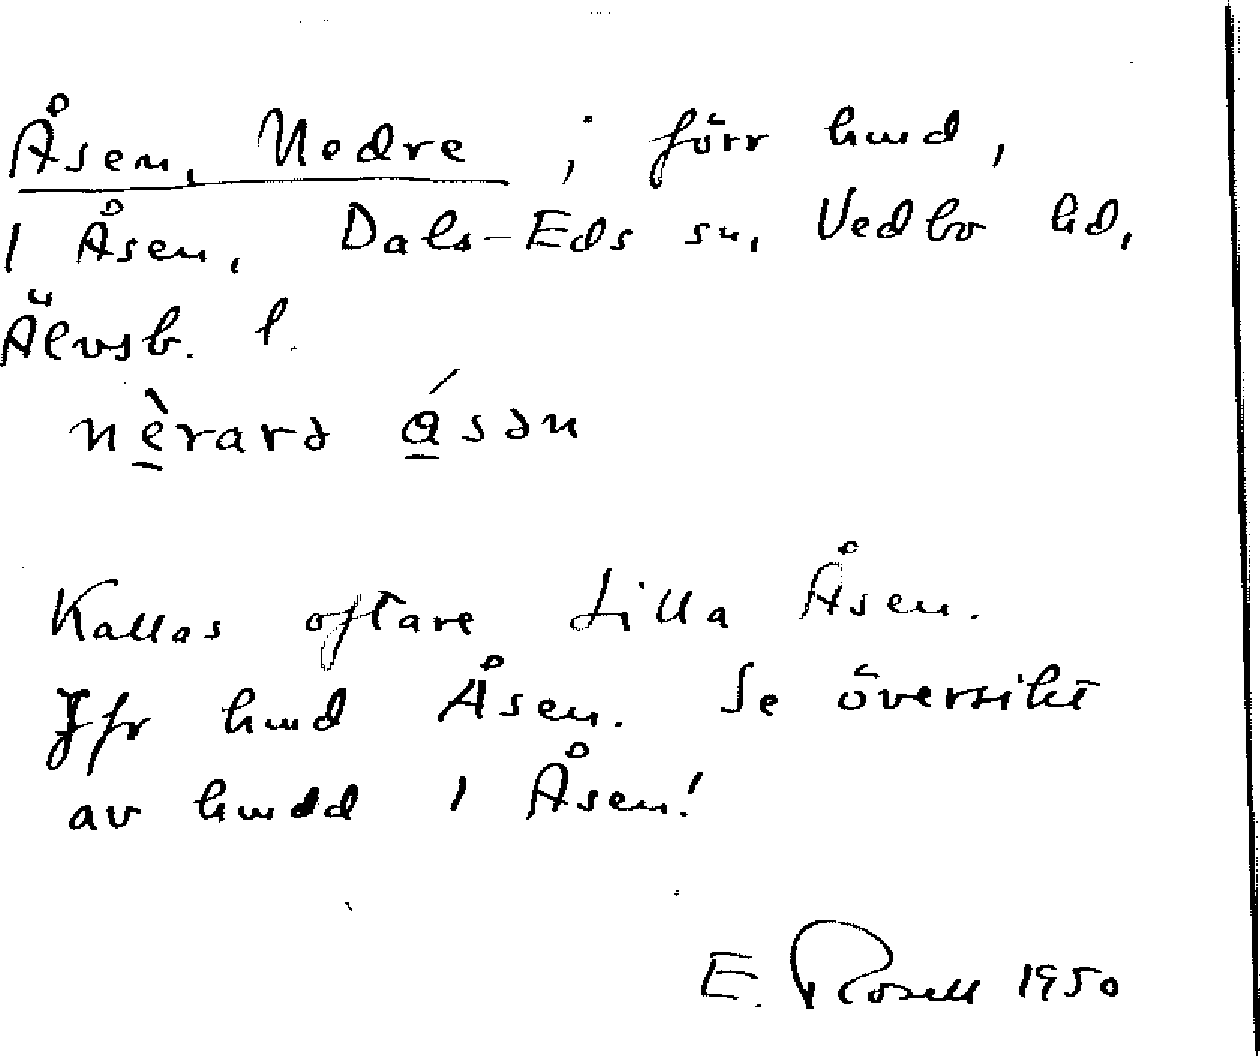 Åsen, Nedre ; förr hmd,
1 Åsen, Dals-Eds sn, Vedbo hd,
Älvsb. l.
nè̱rarə á̱sən
Kallas oftare Lilla Åsen.
Jfr hmd Åsen. Se översikt
av hmdd 1 Åsen!
E. Rosell 1950